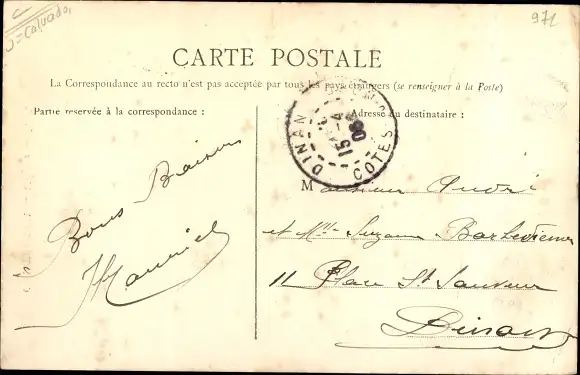 D = Calvados
971
CARTE POSTALE
La Correspondance au recto n'est pas acceptée par tous les pays étrangers (se renseigner à la Poste)
Partie reservée à la correspondance :
Adresse du destinataire :
DINAN
15 - 4
06
COTES
Bons Baisers
Maurice
Monsieur André
et Mlle Suzanne Barbedienne
11 Place St Sauveur
Dinan